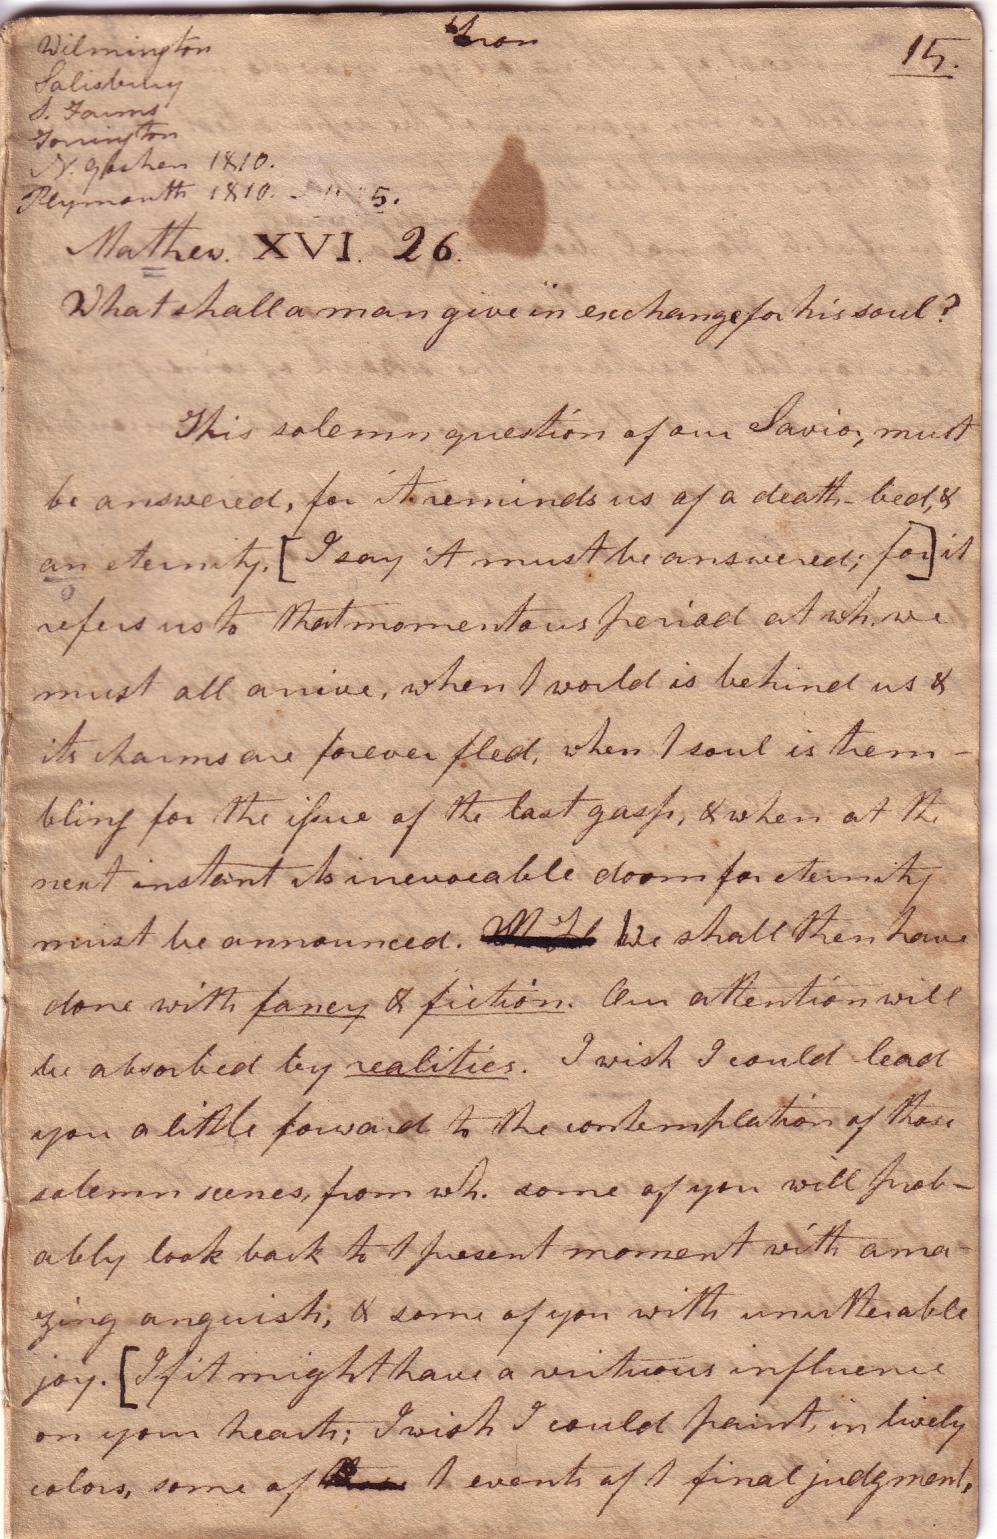 Iron
15.
Wilmington
Salisbury
S. Farms
Torrington
N. Goshen 1810.
Plymouth 1810. 5.
Mathew. XVI. 26.
What shall a man give in exchange for his soul?
This solemn question of our Savior, must
be answered, for it reminds us of a death-bed, &
an eternity. [I say it must be answered; for] it
refers us to that momentous period at wh. we
must all arrive, when I world is behind us &
its charms are forever fled, when I soul is trem-
bling for the issue of the last gasp, & when at the
next instant its irrevocable doom for eternity
must be announced. We shall then have
done with fancy & fiction. Our attention will
be absorbed by realities. I wish I could lead
you a little forward to the contemplation of those
solemn scenes, from wh. some of you will prob-
ably look back to I present moment with ama-
zing anguish, & some of you with unutterable
joy. [If it might have a virtuous influence
on your hearts; I wish I could paint, in lively
colors, some of I events of I final judgment,